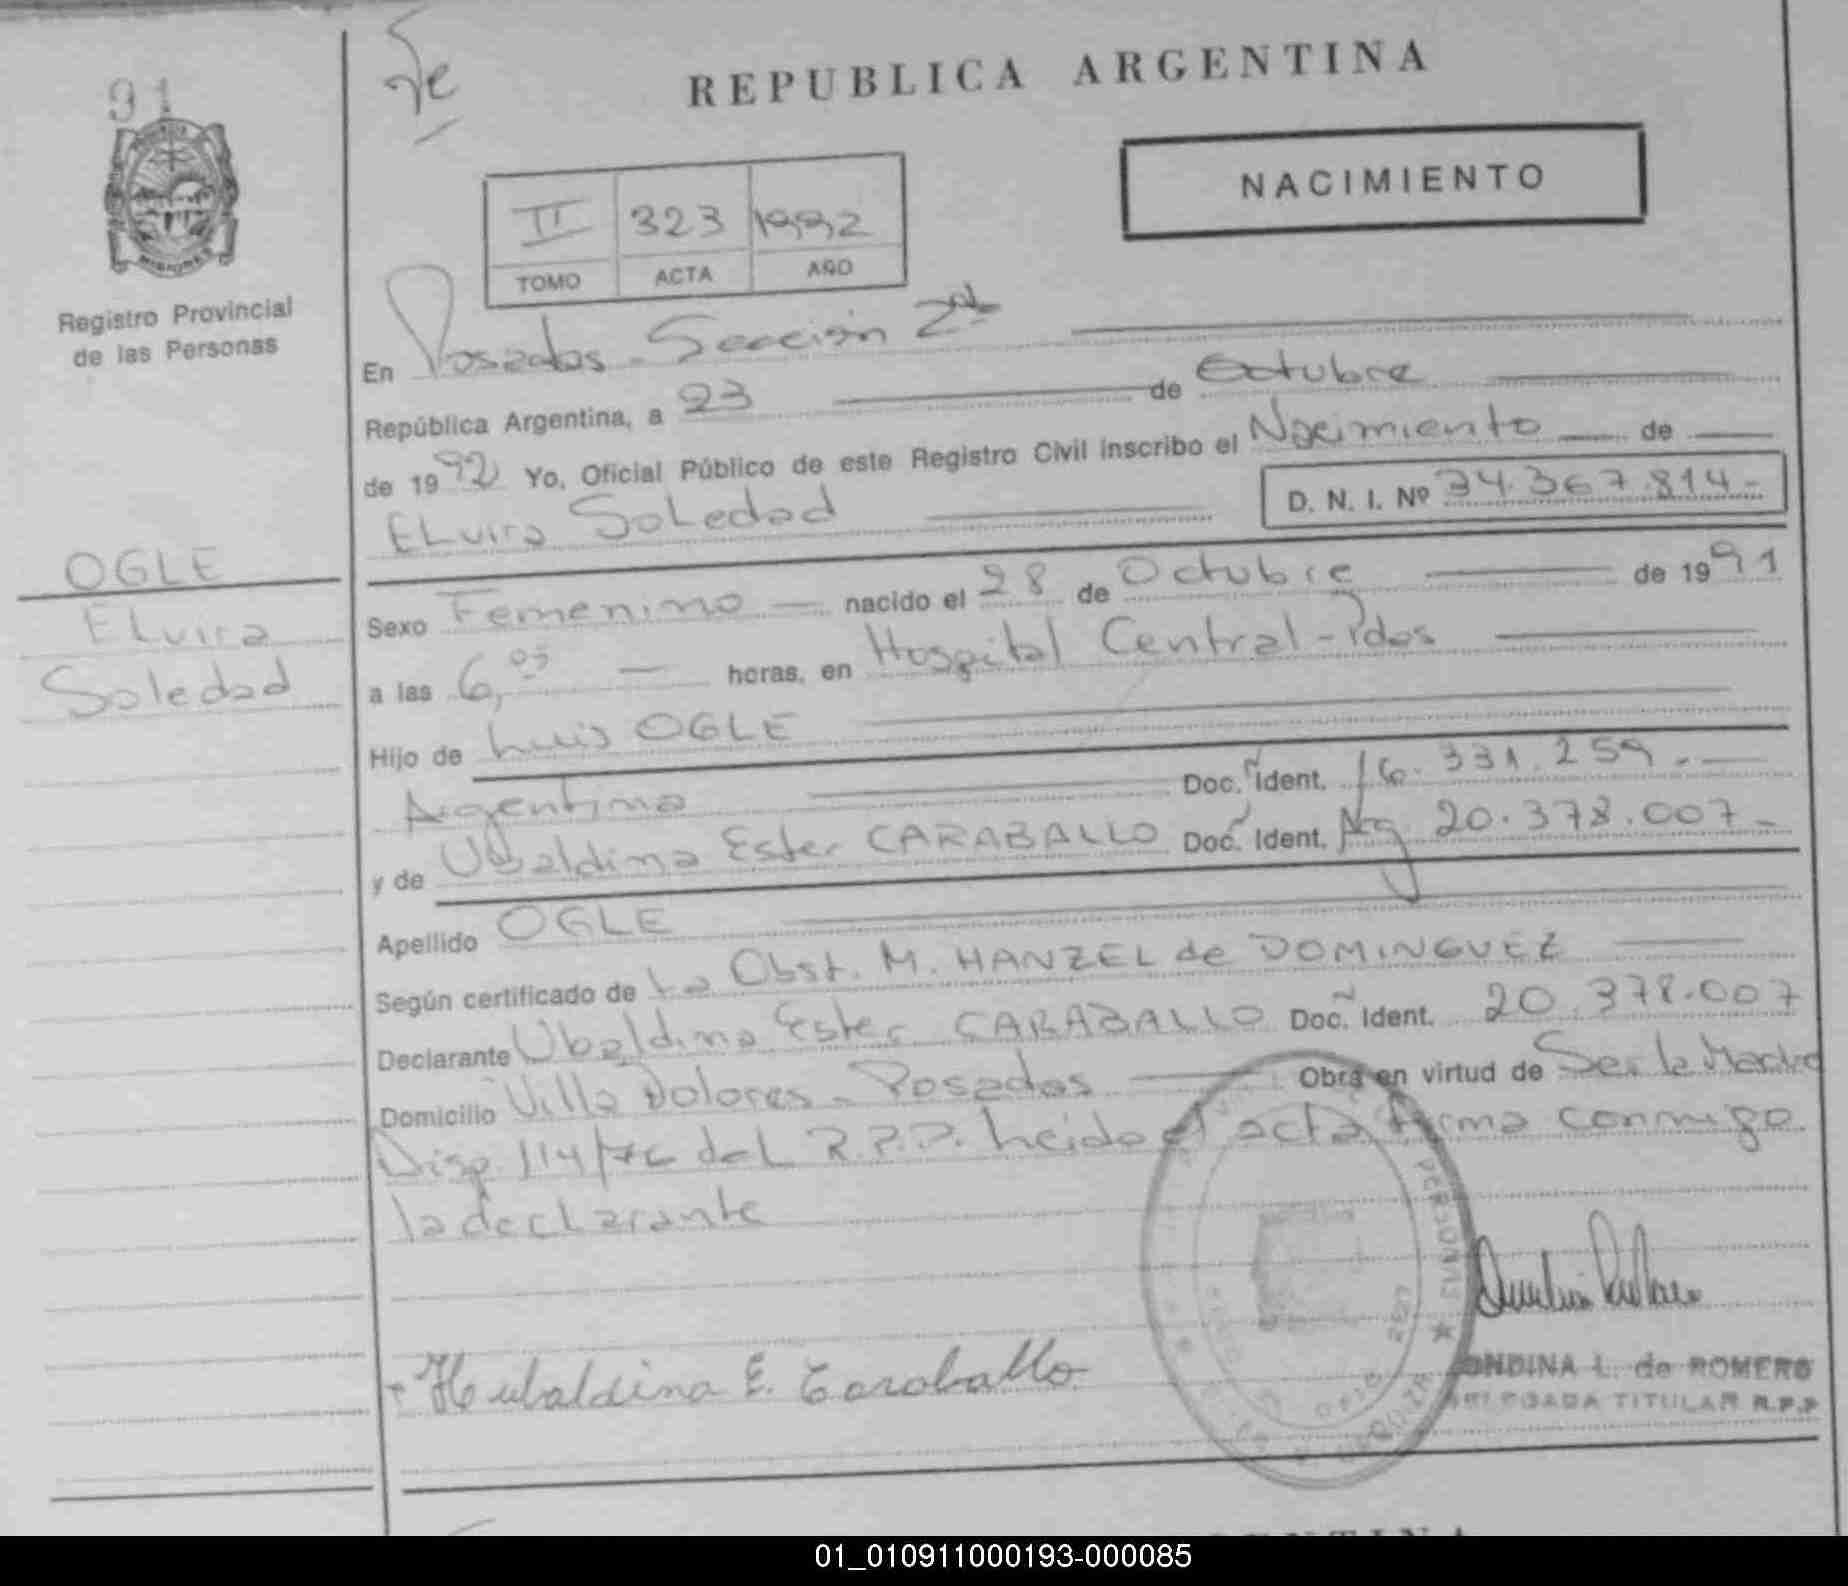 91
REPUBLICA ARGENTINA
NACIMIENTO
II 323 1992
TOMO ACTA AÑO
Registro Provincial
de las Personas
En Posadas - Sección 2da
República Argentina, a 23 de Octubre
de 1992 Yo, Oficial Público de este Registro Civil inscribo el Nacimiento de
Elvira Soledad D. N. I. Nº 34.367.814-
OGLE
Elvira
Soledad
Sexo Femenino nacido el 28 de Octubre de 1991
a las 6,05 horas, en Hospital Central - Pdas
Hijo de Luis OGLE
Argentina Doc. Ident. 16.331.259.-
y de Ubaldina Ester CARABALLO Doc. Ident. Arg. 20.378.007-
Apellido OGLE
Según certificado de La Obst. M. HANZEL de DOMINGUEZ
Declarante Ubaldina Ester CARABALLO Doc. Ident. 20.378.007
Domicilio Villa Dolores - Posadas Obra en virtud de Ser la Madre
Disp. 114/76 del R.P.P. Leida el acta, firma conmigo
la declarante
Hubaldina E. Caraballo
ONDINA L. de ROMERO
DELEGADA TITULAR R.P.P
01_010911000193-000085